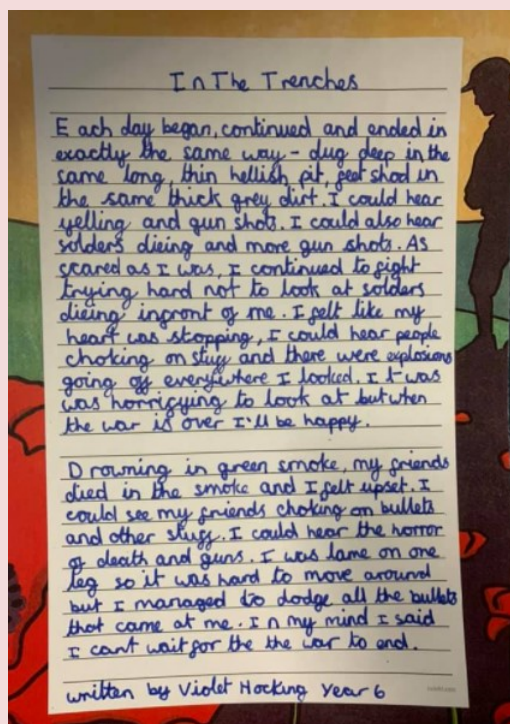 In The Trenches
Each day began, continued and ended in
exactly the same way - dug deep in the
same long, thin hellish pit, feet shod in
the same thick grey dirt. I could hear
yelling and gun shots. I could also hear
solders dieing and more gun shots. As
scared as I was, I continued to fight
trying hard not to look at solders
dieing infront of me. I felt like my
heart was stopping, I could hear people
choking on stuff and there were explosions
going off everywhere I looked. It was
was horrifying to look at but when
the war is over I'll be happy.
Drowning in green smoke, my friends
died in the smoke and I felt upset. I
could see my friends choking on bullets
and other stuff. I could hear the horror
of death and guns. I was lame on one
leg so it was hard to move around
but I managed to dodge all the bullets
that came at me. In my mind I said
I cant wait for the the war to end.
written by Violet Hocking Year 6